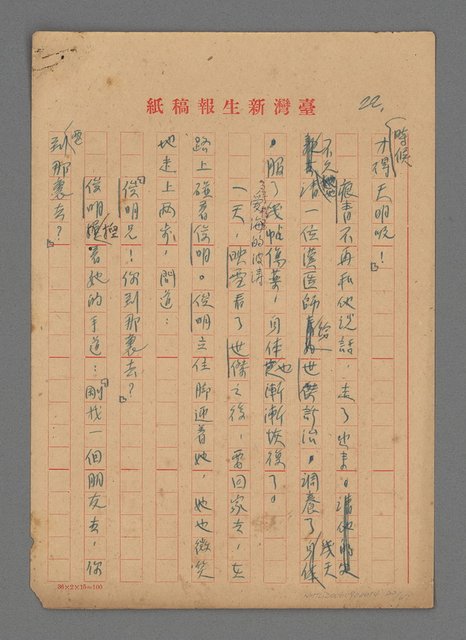 紙稿報生新灣臺
22.
時候
才得天明呢!」
夜青不再和他說話,走了出來。
不久 請一位漢医師給世傑診治。調養了幾天
,服了幾帖傷藥,身体也漸漸恢復了。
愛海的波濤
一天,映雪看了世傑之後,要回家去,在
路上碰着俊明。俊明立住脚迎着她,她也微笑
地走上兩步,問道:
「俊明兄!你到那裏去?」
俊明握着她的手道:「剛找一個朋友去,你
要到那裏去?」
36×2×15=100